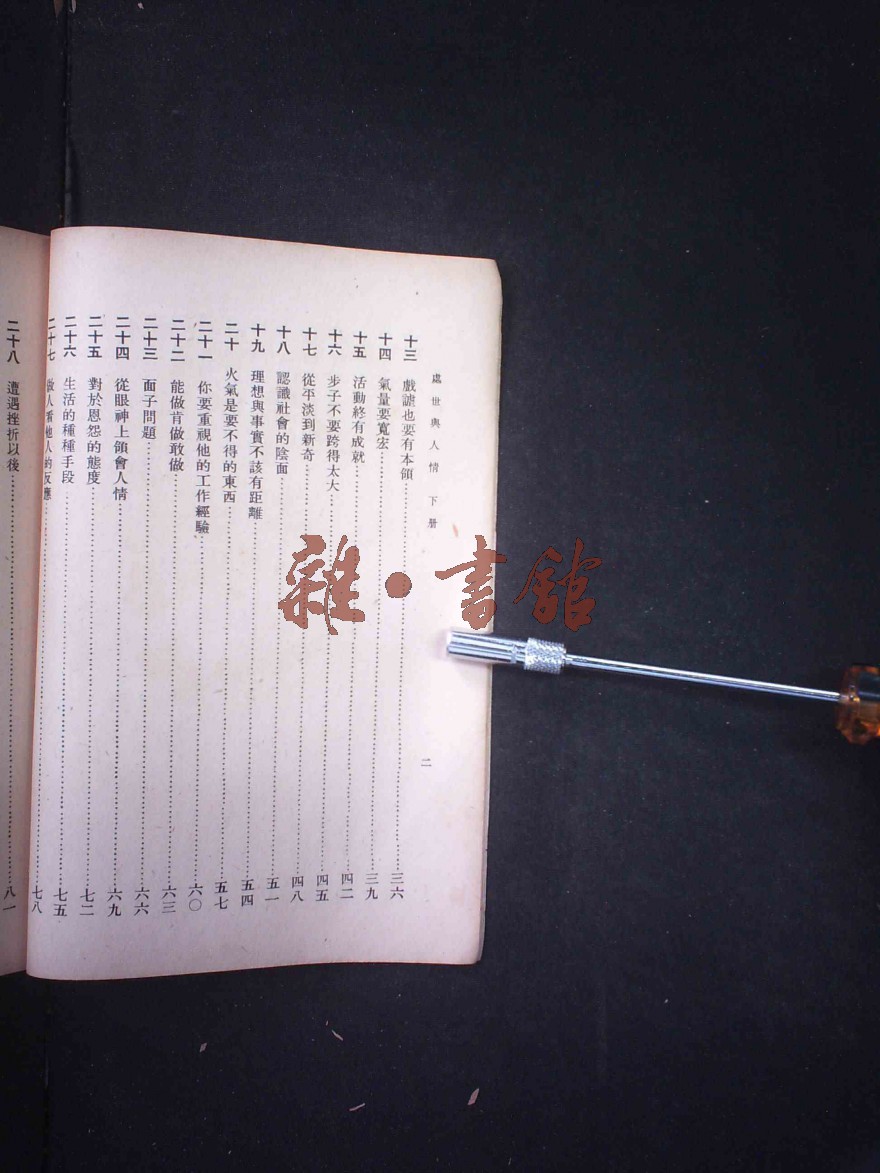 處世與人情 下册
二
十三 戲謔也要有本領 三六
十四 氣量要寬宏 三九
十五 活動終有成就 四二
十六 步子不要跨得太大 四五
十七 從平淡到新奇 四八
十八 認識社會的陰面 五一
十九 理想與事實不該有距離 五四
二十 火氣是要不得的東西 五七
二十一 你要重視他的工作經驗 六〇
二十二 能做肯做敢做 六三
二十三 面子問題 六六
二十四 從眼神上領會人情 六九
二十五 對於恩怨的態度 七二
二十六 生活的種種手段 七五
二十七 做人看他人的反應 七八
二十八 遭遇挫折以後 八一
雜·書館